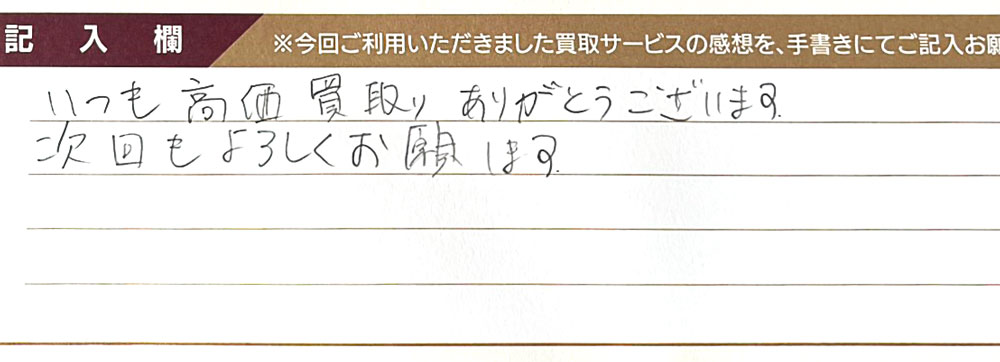 記入欄 ※今回ご利用いただきました買取サービスの感想を、手書きにてご記入お願
いつも高価買取りありがとうございます。
次回もよろしくお願します。